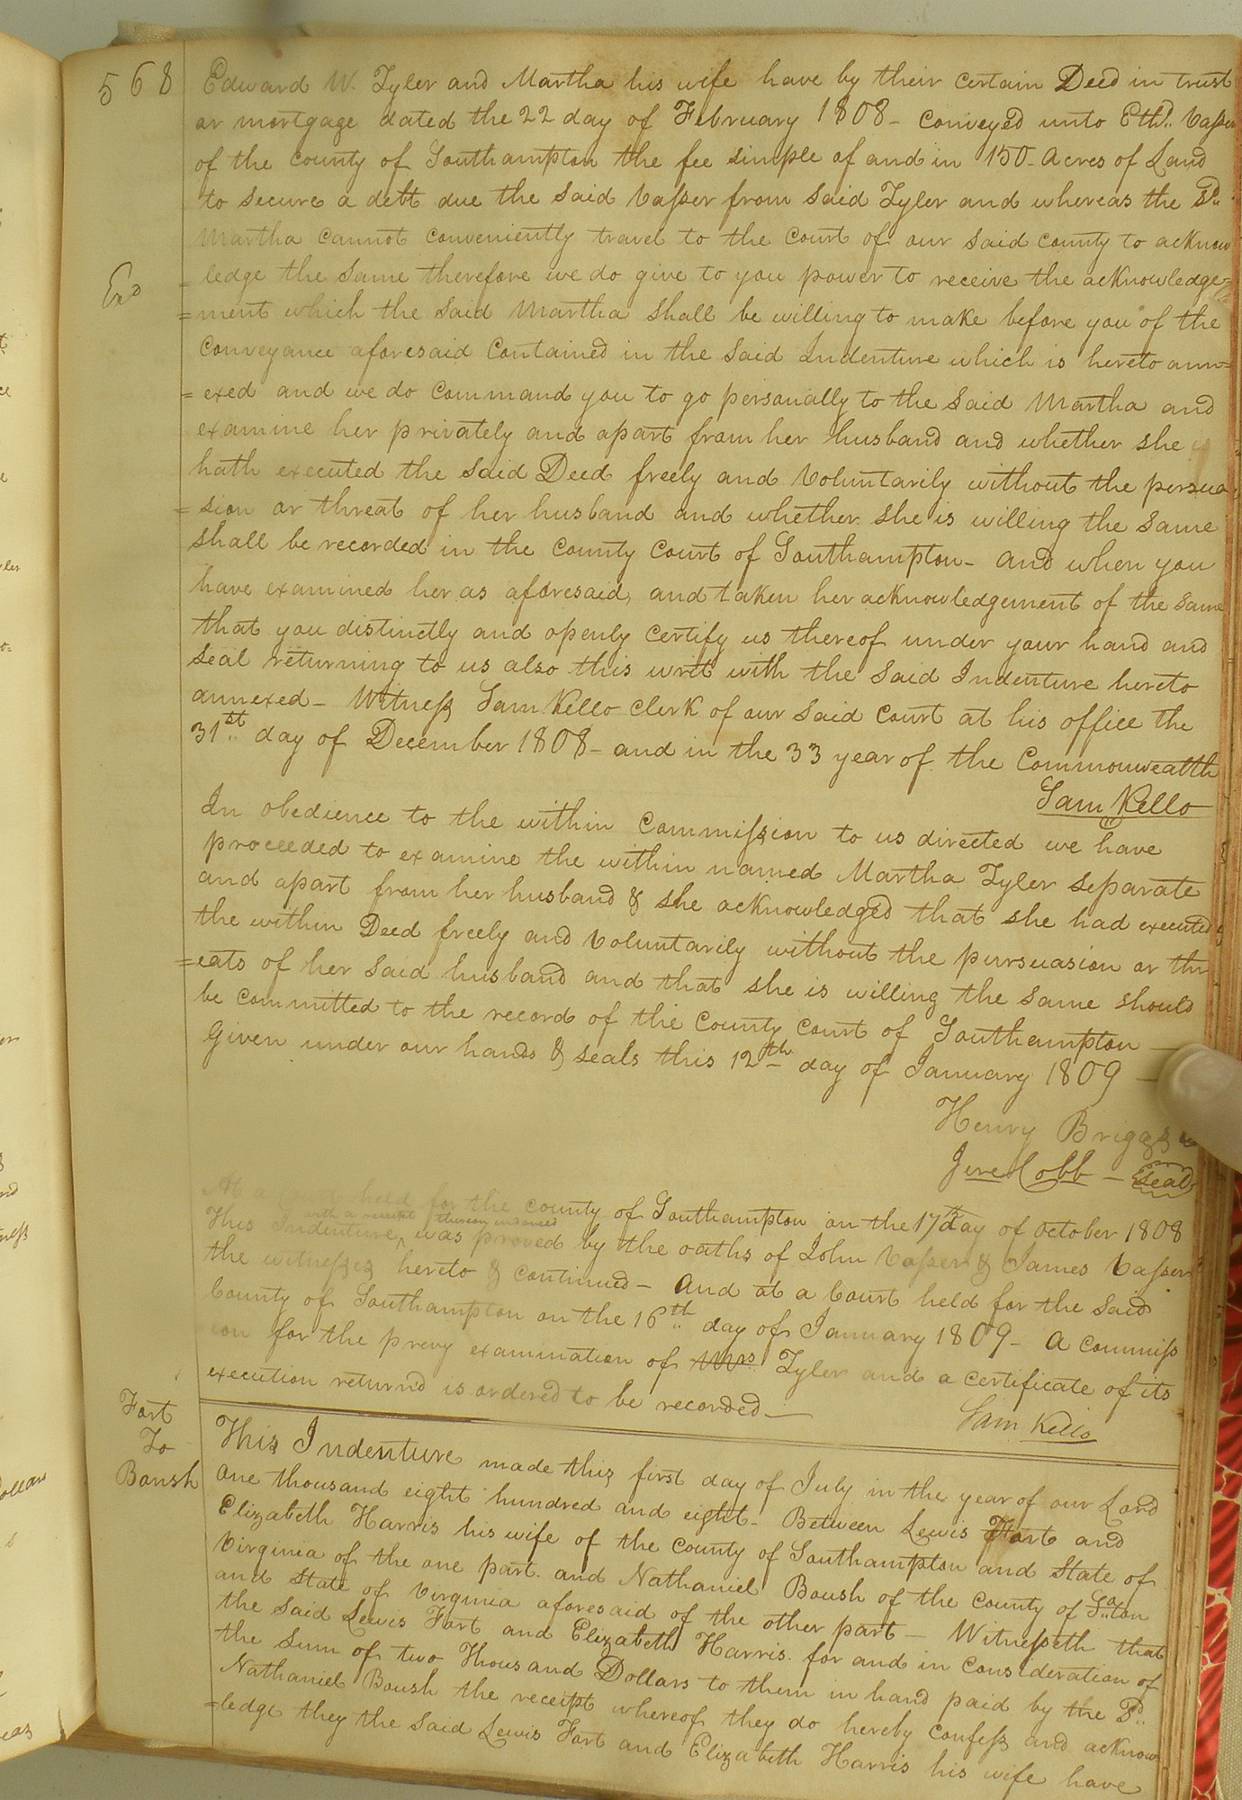 568
Edward W. Tyler and Martha his wife have by their certain Deed in trust
or mortgage dated the 22 day of February 1808 - Conveyed unto Ethd. Vasser
of the County of Southampton the fee simple of and in 150 - Acres of Land
to secure a debt due the said Vasser from said Tyler and whereas the Sd.
Martha cannot conveniently travel to the Court of our said County to acknow
=ledge the same therefore we do give to you power to receive the acknowledge=
Exd
=ment which the said Martha shall be willing to make before you of the
Conveyance aforesaid Contained in the said Indenture which is hereto ann=
=exed and we do Command you to go personally to the said Martha and
examine her privately and apart from her husband and whether she
hath executed the said Deed freely and Voluntarily without the persua
=sion or threat of her husband and whether she is willing the same
shall be recorded in the County Court of Southampton - and when you
have examined her as aforesaid, and taken her acknowledgement of the same
that you distinctly and openly certify us thereof under your hand and
seal returning to us also this writ with the said Indenture hereto
annexed - Witness Sam Kello clerk of our said Court at his office the
31st. day of December 1808 - and in the 33 year of the Commonwealth
Sam Kello
In obedience to the within Commission to us directed we have
proceeded to examine the within named Martha Tyler separate
and apart from her husband & she acknowledged that she had executed
the within Deed freely and Voluntarily without the pursuasion or thr
=eats of her said husband and that she is willing the same should
be committed to the record of the County Court of Southampton -
Given under our hands & seals this 12th day of January 1809 -
Henry Briggs
Jere Cobb - Seal
At a held for the County of Southampton on the 17 day of October 1808
with a receipt thereon indorsed
This Indenture, was proved by the oaths of John Vasser & James Vasser
the witnesses hereto & continued - And at a Court held for the said
County of Southampton on the 16th. day of January 1809 - A Commiss
ion for the prevy examination of Mrs Tyler and a certificate of its
execution returnd is ordered to be recorded -
Sam Kello
Fort
To
Boush
This Indenture made this first day of July in the year of our Lord
One thousand eight hundred and eight - Between Lewis Fort and
Elizabeth Harris his wife of the County of Southampton and State of
Virginia of the one part and Nathaniel Boush of the County of Sa.ton
and State of Virginia aforesaid of the other part - Witnesseth that
the said Lewis Fort and Elizabeth Harris for and in Consideration of
the Sum of two Thousand Dollars to them in hand paid by the Sd.
Nathaniel Boush the receipt whereof they do hereby confess and acknow
=ledge they the said Lewis Fort and Elizabeth Harris his wife have